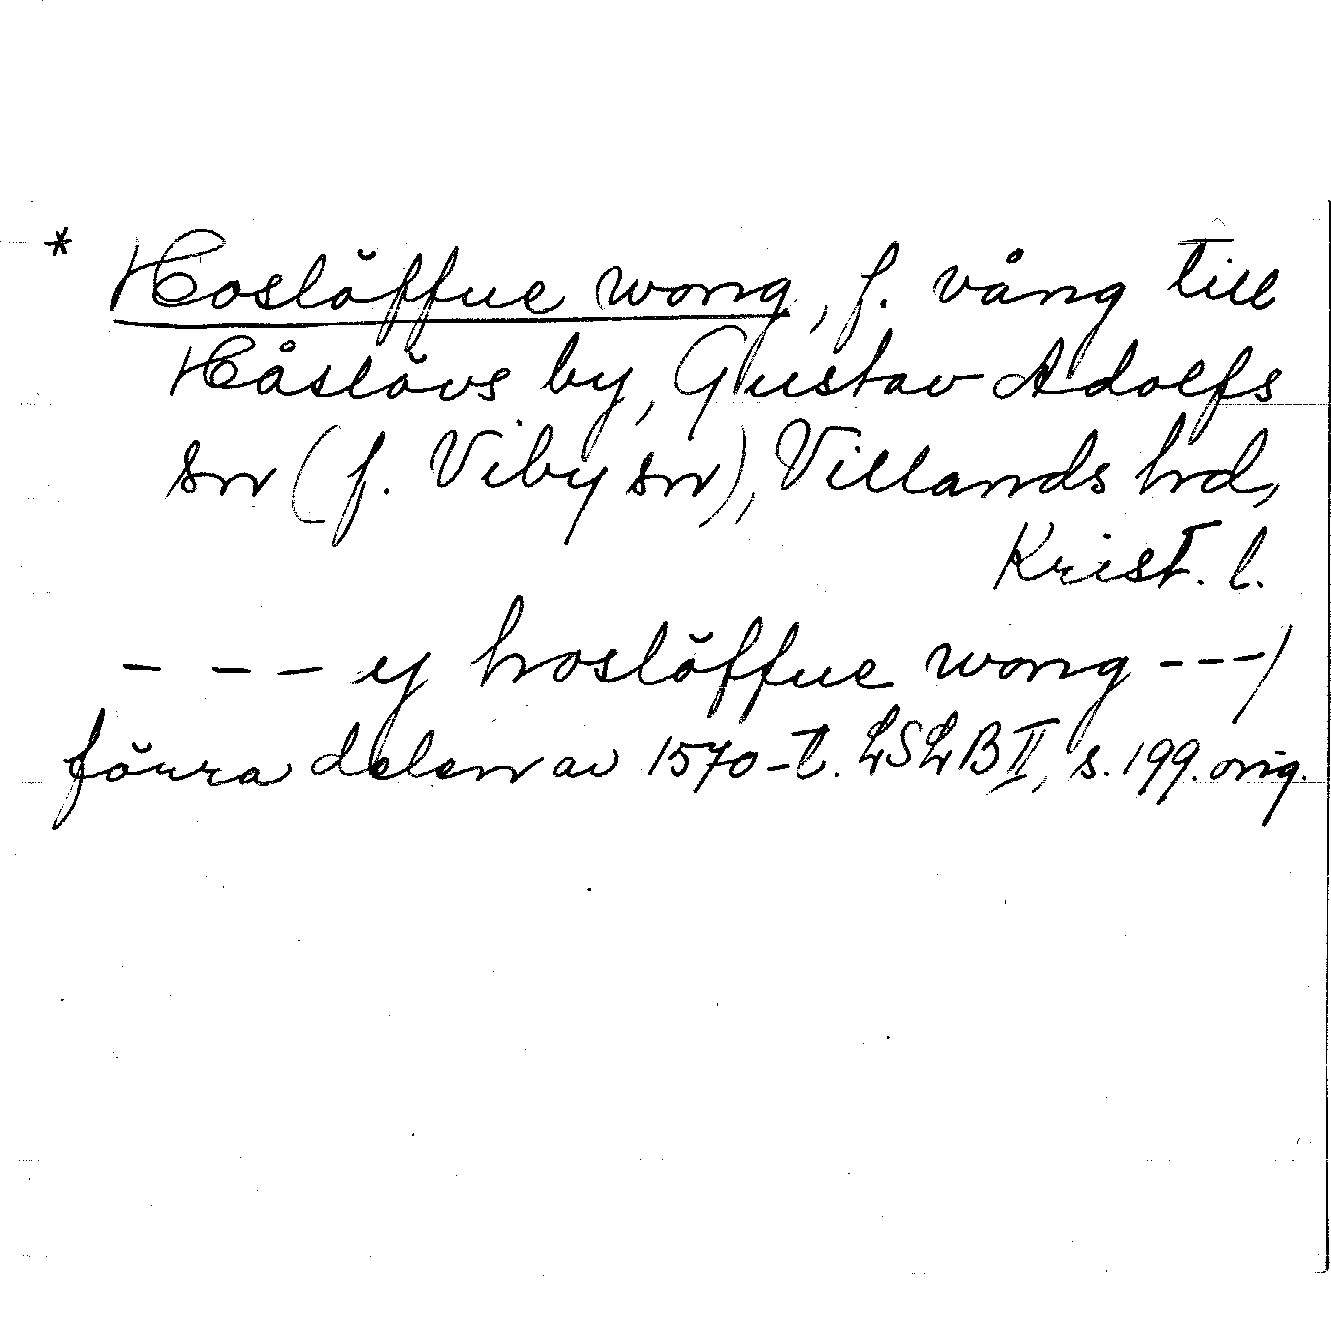 * Hoslöffue wong, f. vång till
Håslövs by, Gustav Adolfs
sn (f. Viby sn), Villands hd,
Krist. l.
– – – y hoslöffue wong – – – /
förra delen av 1570-t. LSLB II, s. 199. orig.